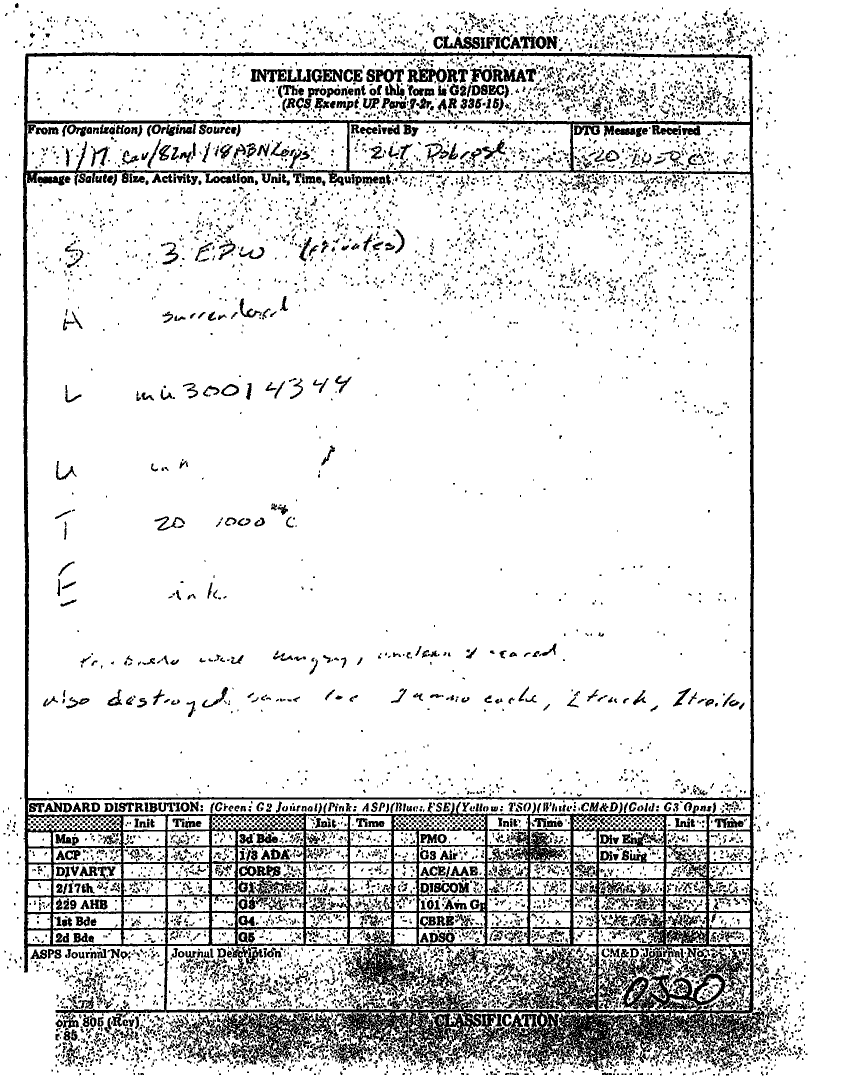 CLASSIFICATION
INTELLIGENCE SPOT REPORT FORMAT
(The proponent of this form is G2/DSEC)
(RCS Exempt UP Para 7-2r, AR 335-15)
From (Organization) (Original Source) Received By DTG Message Received
1/17 Cav/82nd/18 ABN Corps 2LT 20
Message (Salute) Size, Activity, Location, Unit, Time, Equipment
S 3 EPW (privates)
A surrendered
L 30014344
U unk
T 20 1000 C
E unk
were hungry, unclean & scared
also destroyed same loc 1 ammo cache, 1 truck, 1 trailer
STANDARD DISTRIBUTION: (Green: G2 Journal)(Pink: ASP)(Blue: FSE)(Yellow: TSO)(White: CM&D)(Gold: G3 Opns)
Init Time Init Time Init Time Init Time
Map 3d Bde PMO Div Eng
ACP 1/3 ADA G3 Air Div Surg
DIVARTY CORPS ACE/AAE
2/17th G1 DISCOM
229 AHB G3 101 Avn Gp
1st Bde G4 CBRE
2d Bde G5 ADSO
ASPS Journal No. Journal Description CM&D Journal No.
0520
orm 805 (Rev) CLASSIFICATION
r 85